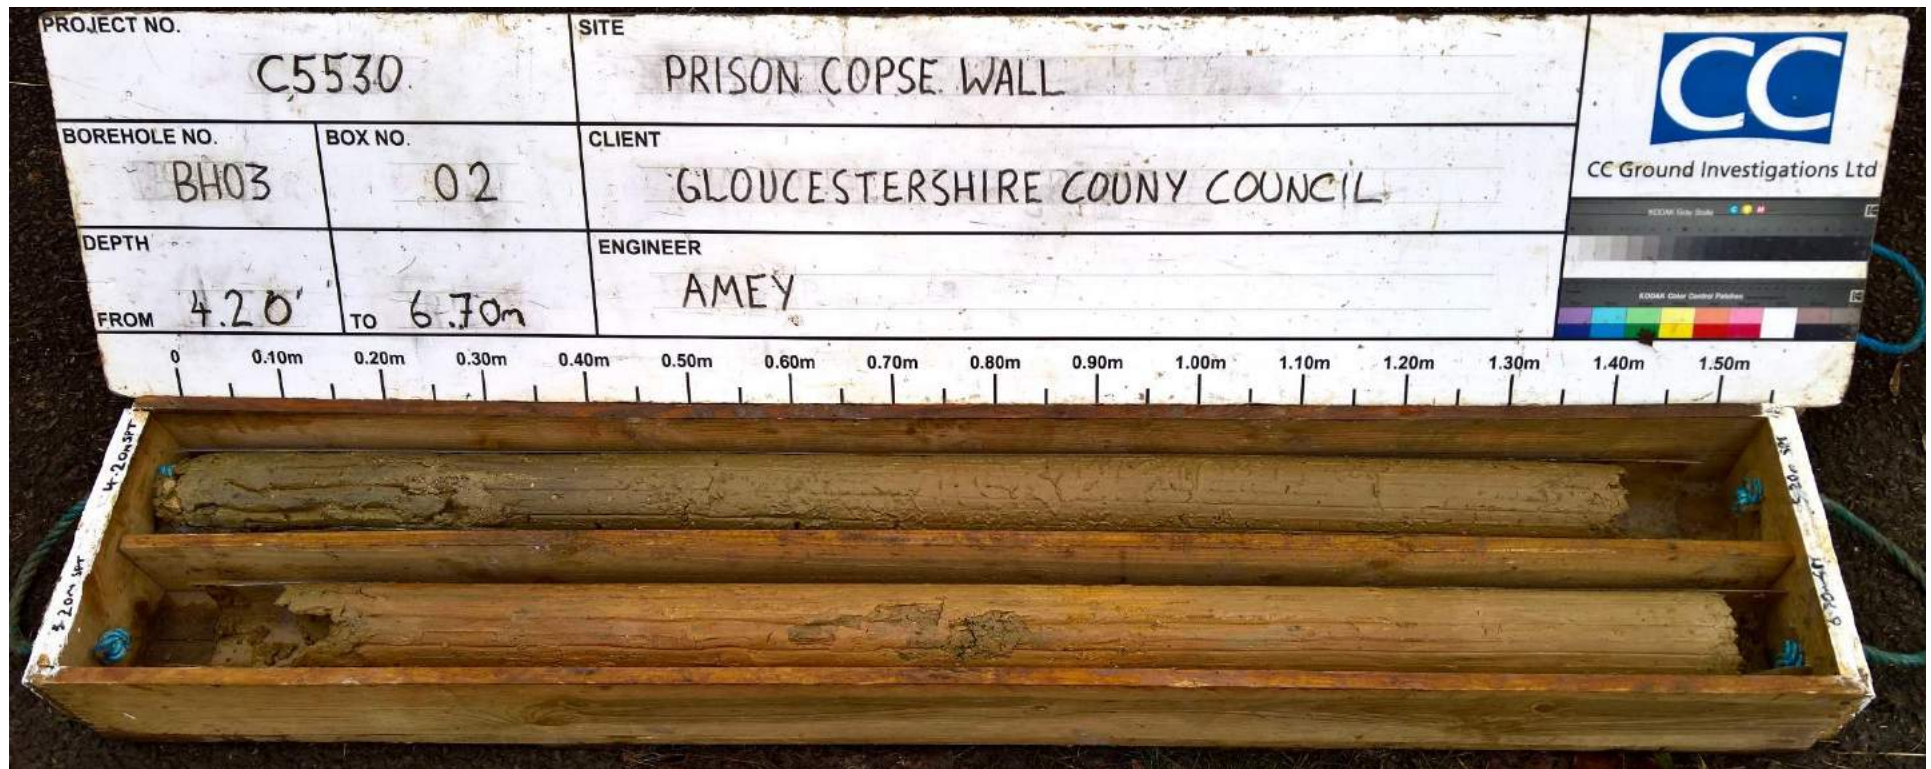 PROJECT NO.
C5530
SITE
PRISON COPSE WALL
CC
CC Ground Investigations Ltd
BOREHOLE NO.
BH03
BOX NO.
02
CLIENT
GLOUCESTERSHIRE COUNY COUNCIL
DEPTH
FROM 4.20 TO 6.70m
ENGINEER
AMEY
KODAK Gray Scale C Y M
KODAK Color Control Patches
0 0.10m 0.20m 0.30m 0.40m 0.50m 0.60m 0.70m 0.80m 0.90m 1.00m 1.10m 1.20m 1.30m 1.40m 1.50m
4.20m SPT
5.20m SPT